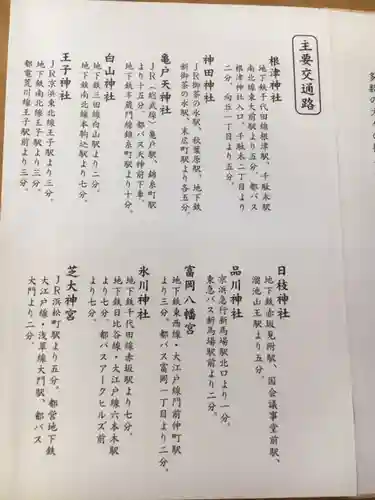 主要交通路
根津神社
地下鉄千代田線根津駅、千駄木駅
南北線東大前駅より五分。都バス
根津神社入口、千駄木二丁目より
二分、向丘一丁目より五分。
神田神社
JR御茶の水駅、秋葉原駅、地下鉄
新御茶の水駅、末広町駅より各五分。
亀戸天神社
JR(総武線)亀戸駅、錦糸町駅
より十五分。都バス天神前下車
地下鉄半蔵門線錦糸町駅より十分。
白山神社
地下鉄三田線白山駅より二分。
地下鉄南北線本駒込駅より七分。
王子神社
JR京浜東北線王子駅より三分。
地下鉄南北線王子駅より三分。
都電荒川線王子駅前より三分。
日枝神社
地下鉄赤坂見附駅、国会議事堂前駅、
溜池山王駅より五分。
品川神社
京浜急行新馬場駅北口より一分。
東急バス新馬場駅前より二分。
富岡八幡宮
地下鉄東西線・大江戸線門前仲町駅
より三分。都バス富岡一丁目より二分。
氷川神社
地下鉄千代田線赤坂駅より七分。
地下鉄日比谷線・大江戸線六本木駅
より七分。都バスアークヒルズ前
より七分。
芝大神宮
JR浜松町駅より五分。都営地下鉄
大江戸線・浅草線大門駅、都バス
大門より二分。